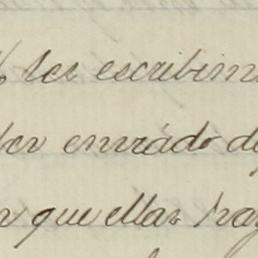 les escribim
enviado de
que ellas hay